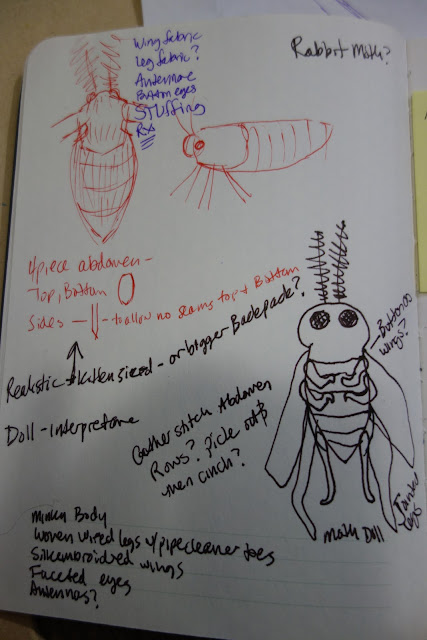 Wing fabric
Leg fabric?
Antennae
Button eyes
STUFFING
Rabbit Moth?
4 piece abdomen-
Top, Bottom
Sides - - to allow no seams top + Bottom
Realistic - Kitten sized - or bigger Backpack?
Doll - interpretane
Button on
wings?
Gather stitch Abdomen
Rows? Pick out
then cinch?
Legs
Moth Doll
Body
Woven wired legs w/ pipecleaner toes
Silk embroidered wings
Faceted eyes
Antennas?